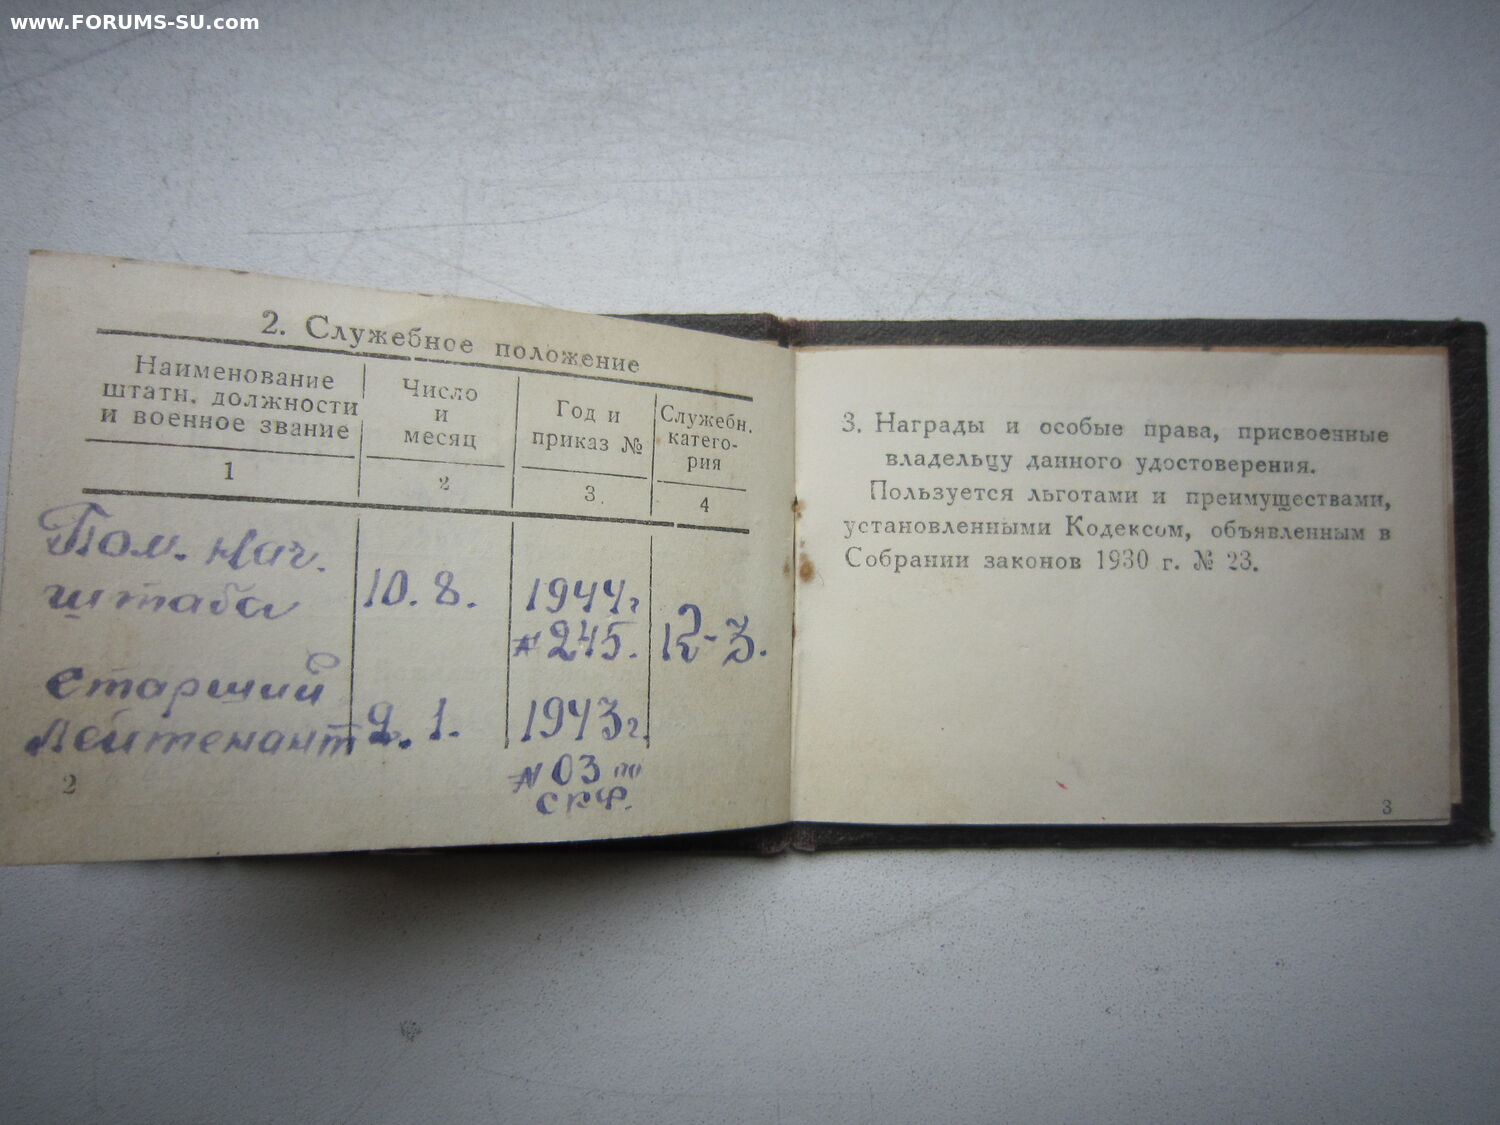 www.FORUMS-SU.com
2. Служебное положение
Наименование штатн. должности и военное звание
Число и месяц
Год и приказ №
Служебн. катего-рия
1
2
3.
4
Пом. нач.
штаба
10. 8.
1944г
№ 245.
К-3.
старший
лейтенант
9. 1.
1943г.
№ 03 по
СКФ.
2
3. Награды и особые права, присвоенные
владельцу данного удостоверения.
Пользуется льготами и преимуществами,
установленными Кодексом, объявленным в
Собрании законов 1930 г. № 23.
3